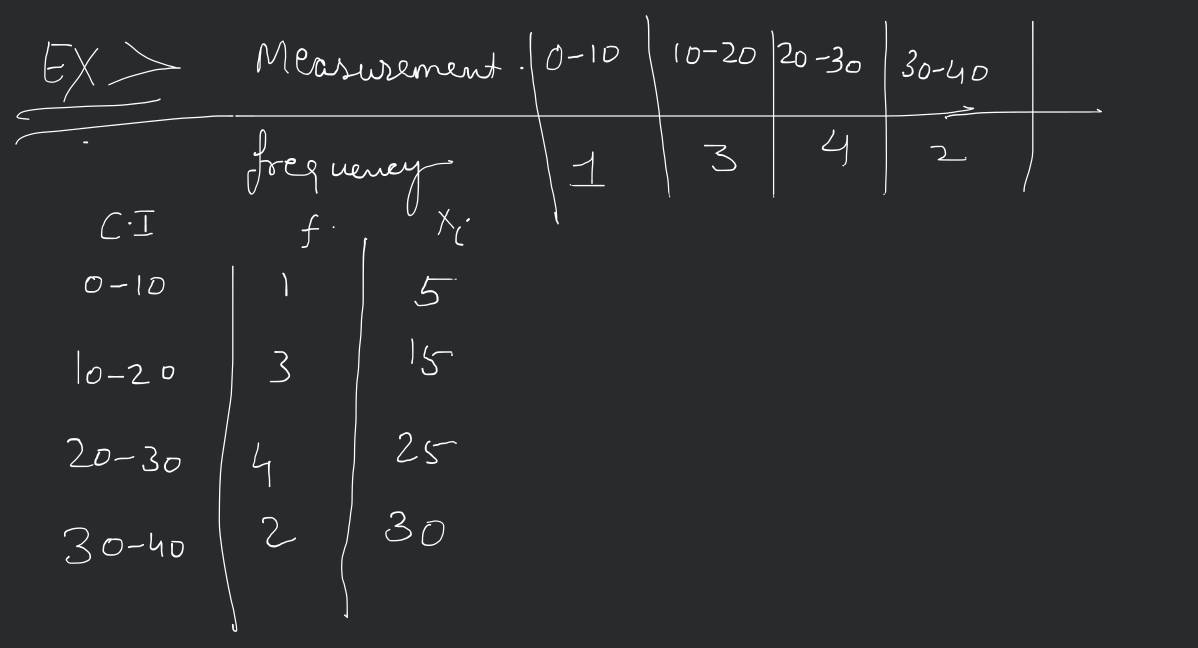 EX > Measurement. 0-10 10-20 20-30 30-40
frequency 1 3 4 2
C.I f. xi
0-10 1 5
10-20 3 15
20-30 4 25
30-40 2 30